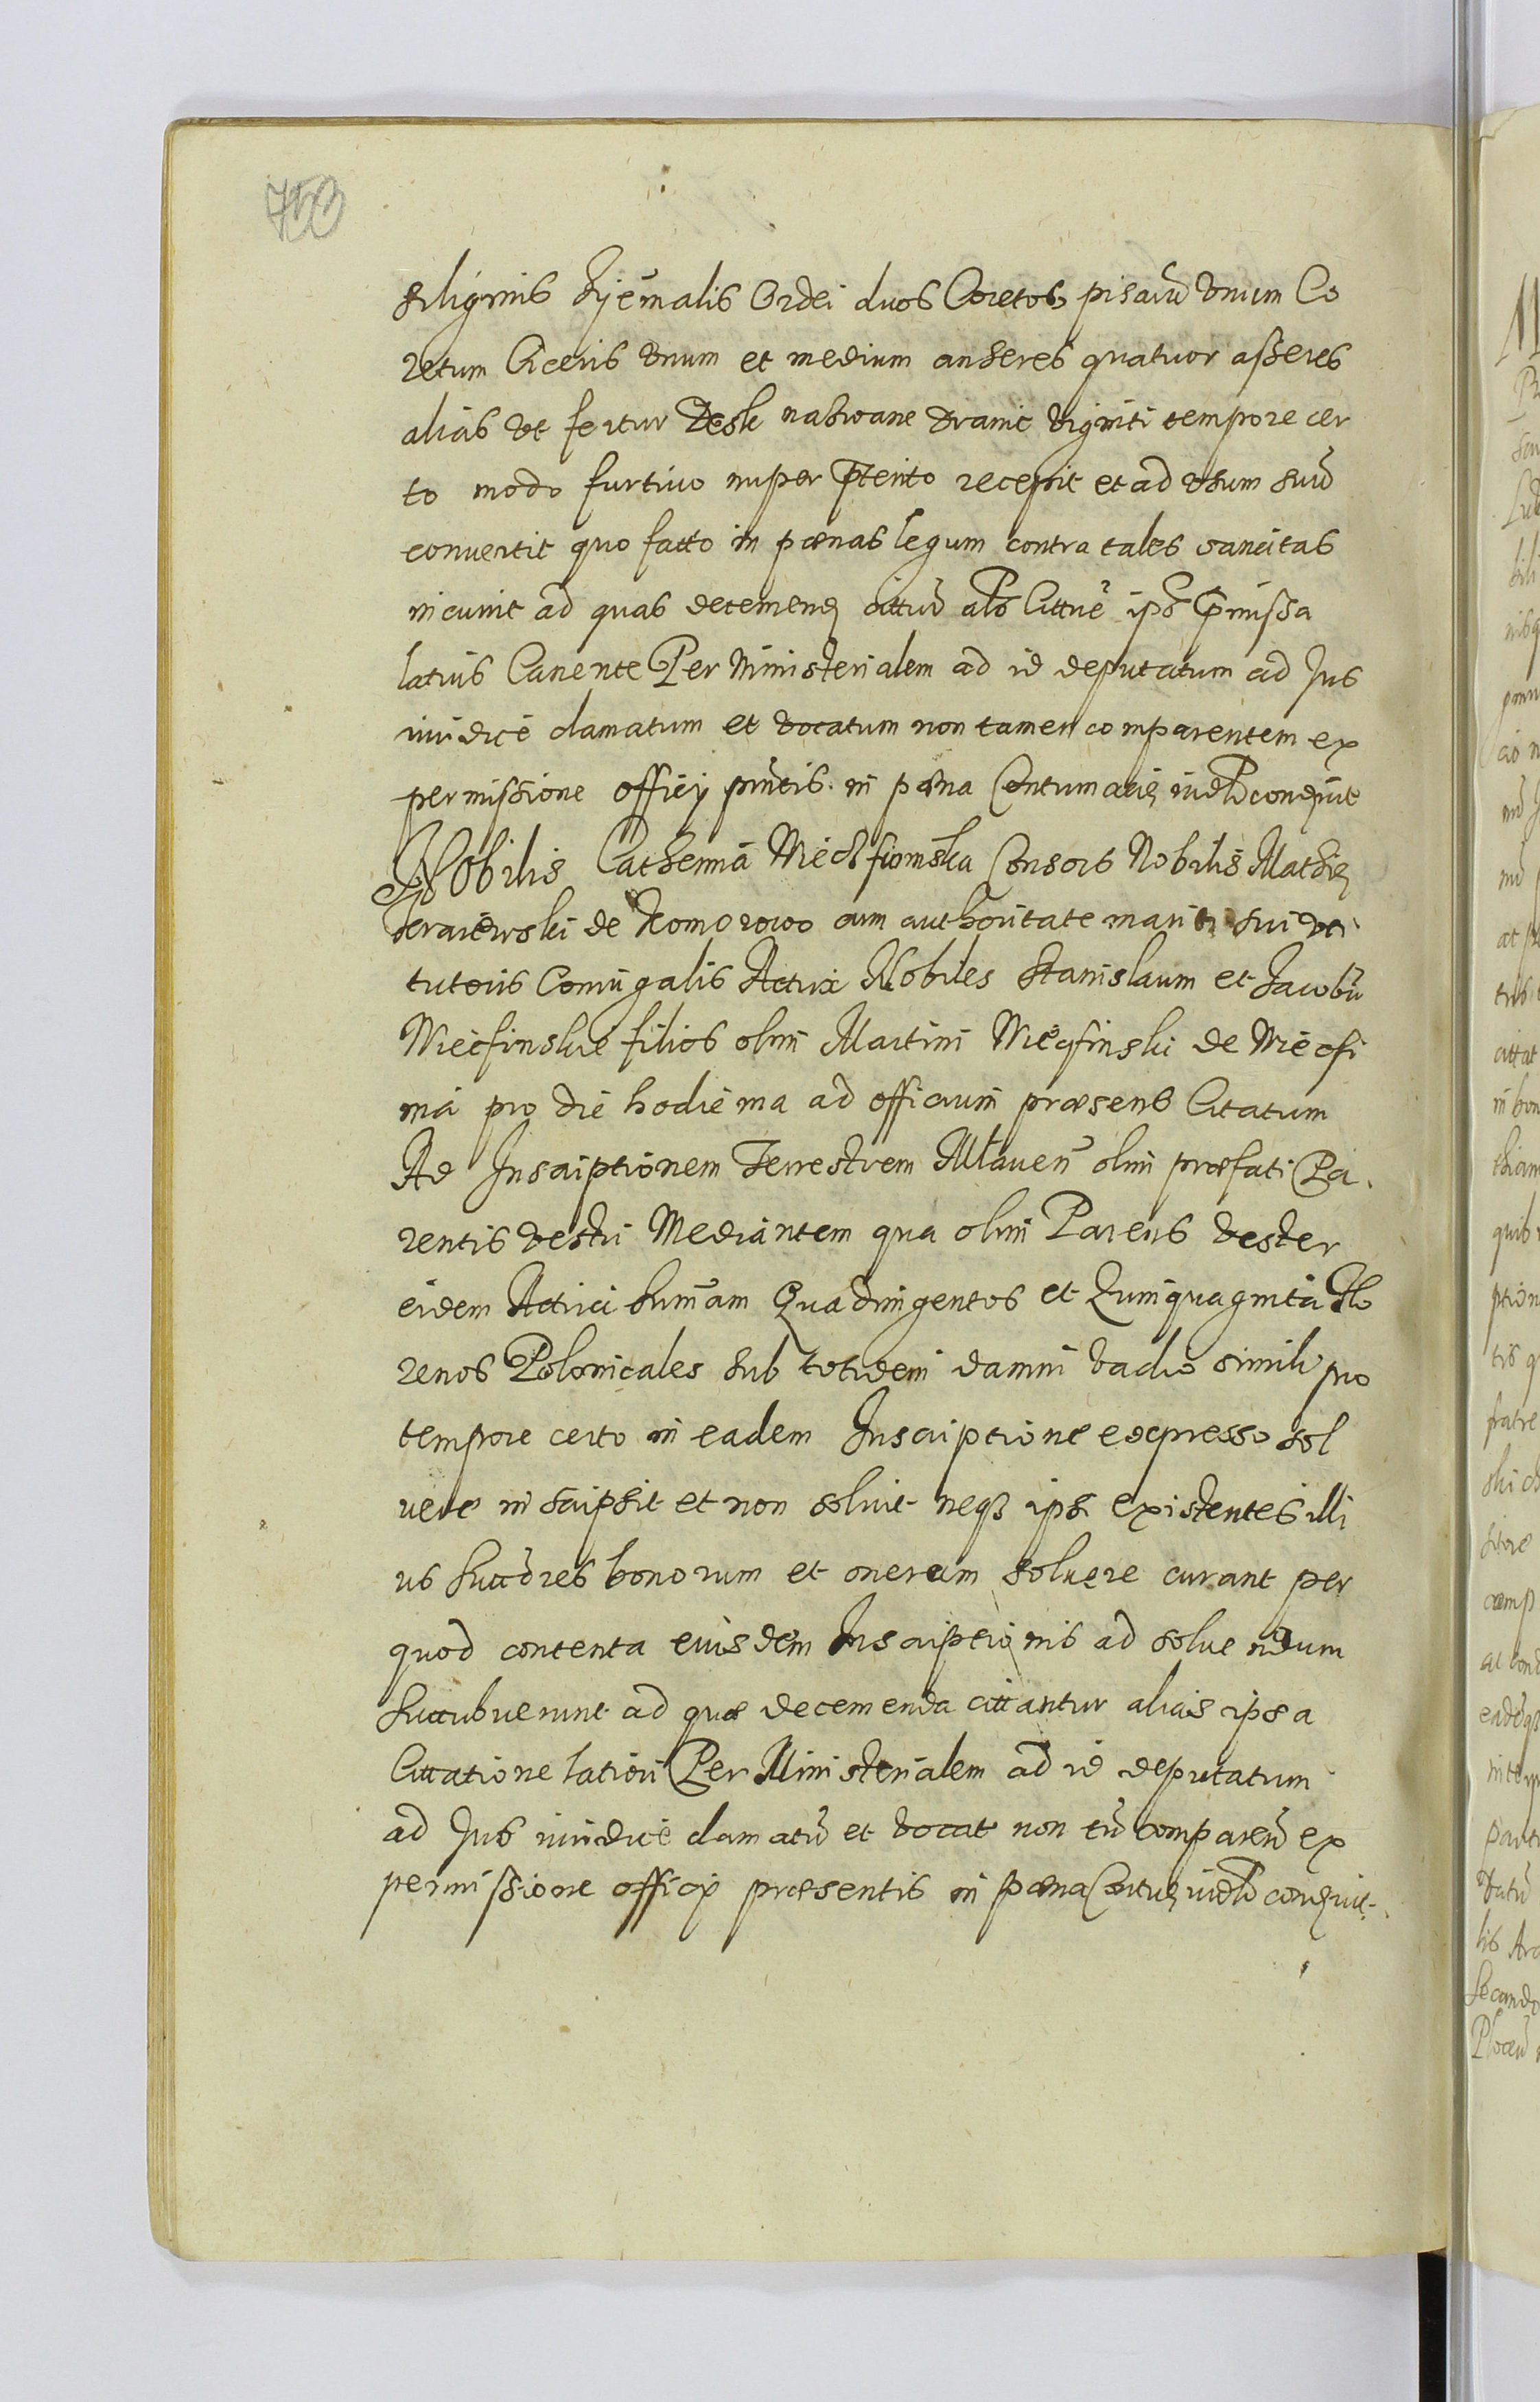 750
Siliginis Hyemalis Ordei duos Coretos pisarū Unum Co
retum Ciceris Unum et medium anseres quatuor asseres
alias ut fertur Deski nasciane dranic viginti tempore cer
to modo furtivo nuper pterito recepit et ad usum suū
convertit quo facto in pœnas legum contra tales sancitas
incurrit ad quas decernend cittū als Cittnē ipō pmissa
latius Canente Per Ministerialem ad id deputatum ad Jus
iuridicè clamatum et vocatum non tamen comparentem ex
permissione officij pntis in pœna Contumacie condemt
Nobilis Catherina Consors Nobilis Mathie
de Komorowo cum authoritate mariti sui ve
tutoris Coniugalis Actrix Nobiles Stanislaum et Jacobū
Wiecfinskie filios olim Martini Wiecfinski de Wiecfi
nia pro die hodierna ad officium præsens Citatum
Ad Inscriptionem Terrestrem Mlaven olim præfati Pa
rentis vestri Mediantem qua olim Parens vester
eidem Actrici Sum̄am Quadringentos et Quinquaginta Flo
renos Polonicales sub totidem damni vadio simili pro
tempore certo in eadem Inscriptione expresso sol
vere inscripsit et non solvit neqȝ ipsi existentes illi
us Succōres bonorum et onerum solvere curant per
quod contenta eiusdem Inscriptionis ad solvendum
Succubuerunt ad quæ decernenda cittantur alias ipsa
Cittatione latiori Per Ministerialem ad id deputatum
ad Jus iuridicè clamatū et vocat non tñ comparen̄ ex
permissione officij præsentis in pœna condemt